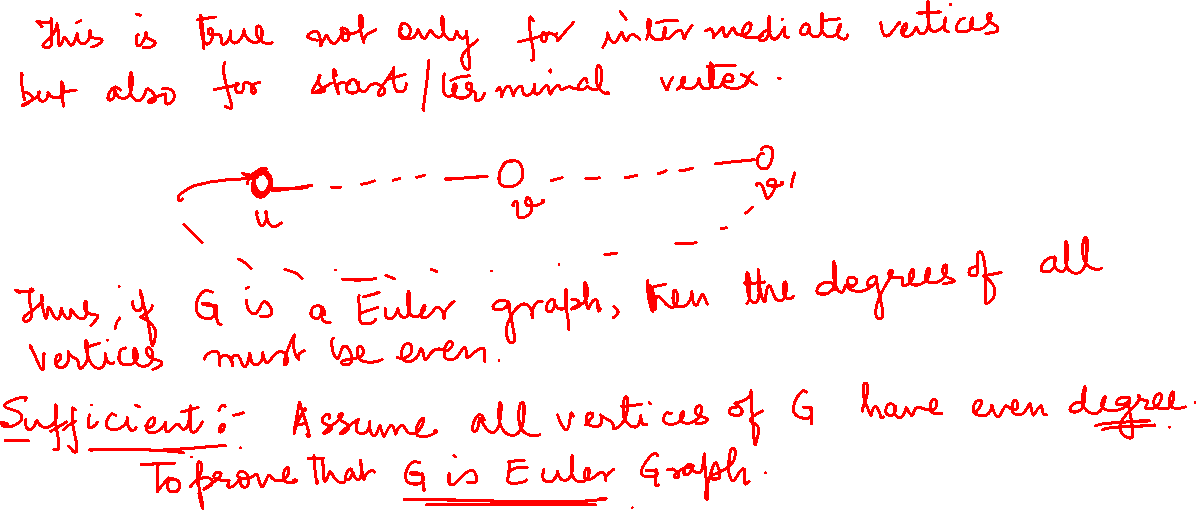 This is true not only for intermediate vertices
but also for start/terminal vertex.
u v v'
Thus, if G is a Euler graph, then the degrees of all
vertices must be even.
Sufficient:- Assume all vertices of G have even degree.
To prove that G is Euler Graph.